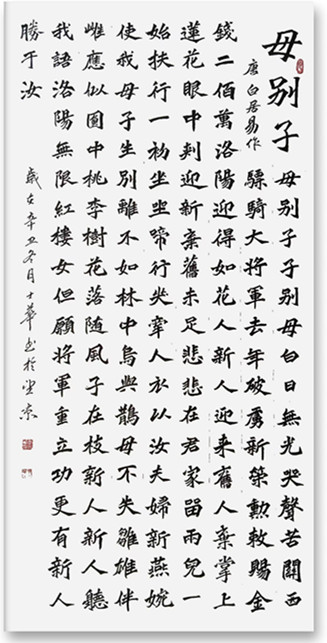 母别子
唐白居易作
母别子子别母白日無光哭聲苦關西
驃騎大將軍去年破虜新策勳敕賜金
錢二佰萬洛陽迎得如花人新人迎来舊人棄掌上
蓮花眼中刺迎新棄舊未足悲悲在君家留兩兒一
始扶行一初坐坐啼行哭牽人衣以汝夫婦新燕婉
使我母子生别離不如林中烏與鵲母不失雛雄伴
雌應似園中桃李樹花落随風子在枝新人新人聽
我語洛陽無限紅樓女但願將軍重立功更有新人
勝于汝
歲在辛丑冬月士華书於京